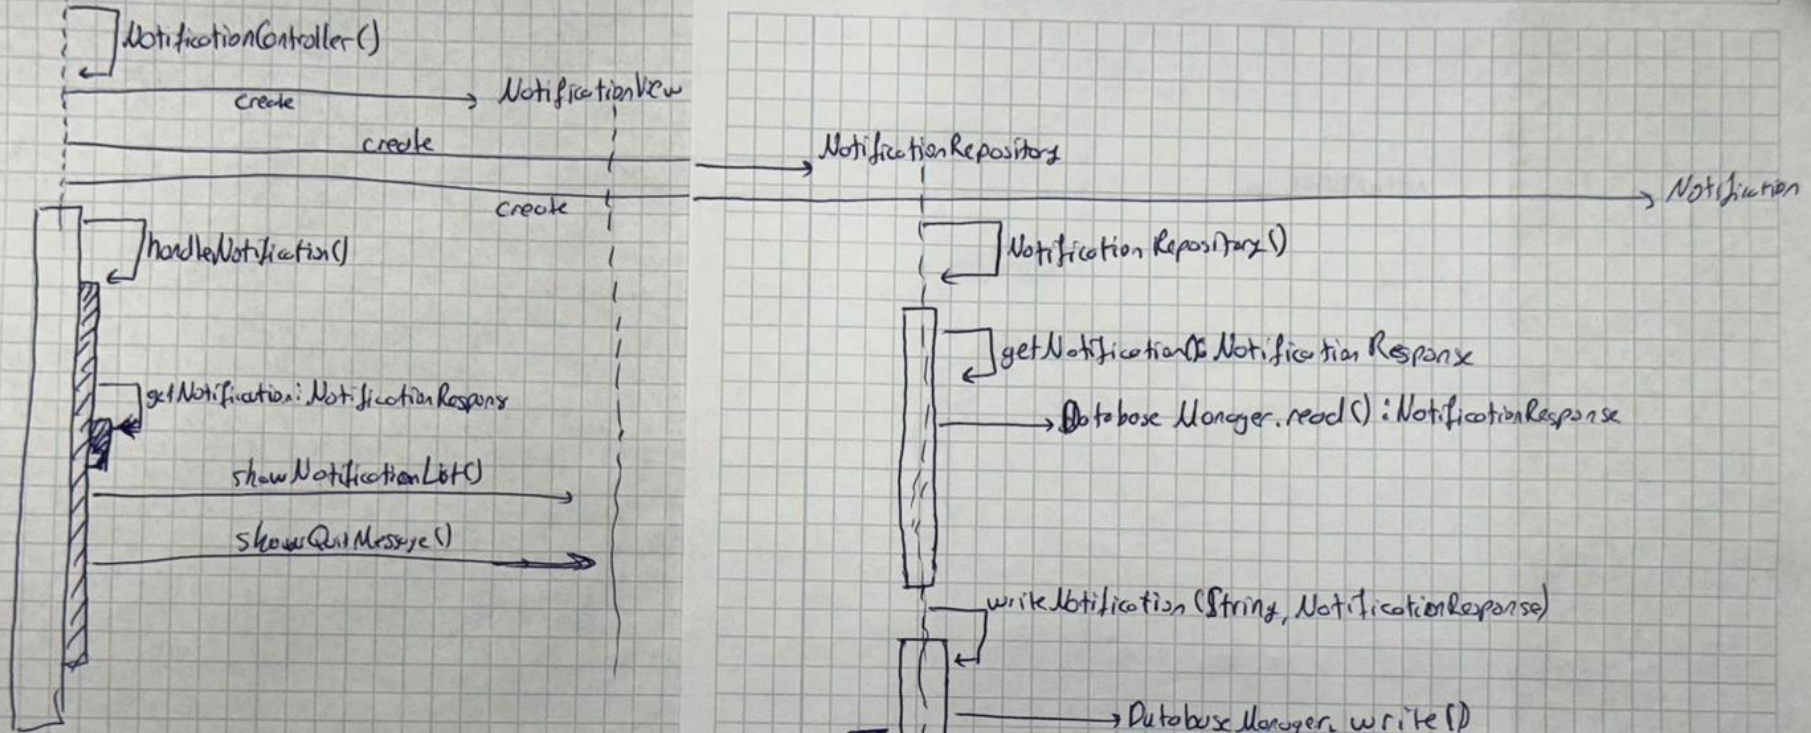 NotificationController()
create
NotificationView
create
NotificationRepository
create
Notification
handleNotification()
NotificationRepository()
getNotification(): NotificationResponse
getNotification: NotificationRespons
DatabaseManager.read() : NotificationResponse
showNotificationList()
showQuitMessage()
writeNotification (String, NotificationResponse)
DatabaseManager. write()